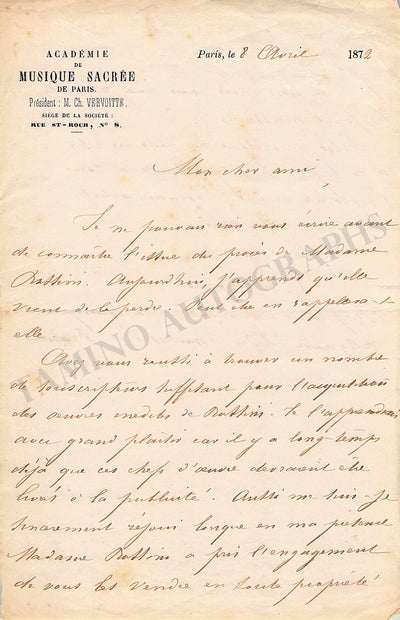 ACADÉMIE
DE
MUSIQUE SACRÉE
DE PARIS.
Président : M. Ch. VERVOITTE.
SIÉGE DE LA SOCIÉTÉ :
RUE ST-ROCH, N° 8.
Paris, le 8 Avril 1872
Mon cher ami,
Je ne pouvais rien vous écrire avant
de connaître l'issue du procès de Madame
Rossini. Aujourd'hui, j'apprends qu'elle
vient de le perdre. Peut être en rappellera-t-
elle.
Avez vous reussi à trouver un nombre
de souscripteurs suffisant pour l'acquisition
des œuvres inedites de Rossini. Je l'apprendrais
avec grand plaisir car il y a long-temps
déjà que ces chefs d'œuvre devraient être
livrés à la publicité. Aussi me suis-je
sincerement réjoui lorsque en ma présence
Madame Rossini a pris l'engagement
de vous les vendre en toute propriété
TAMINO AUTOGRAPHS